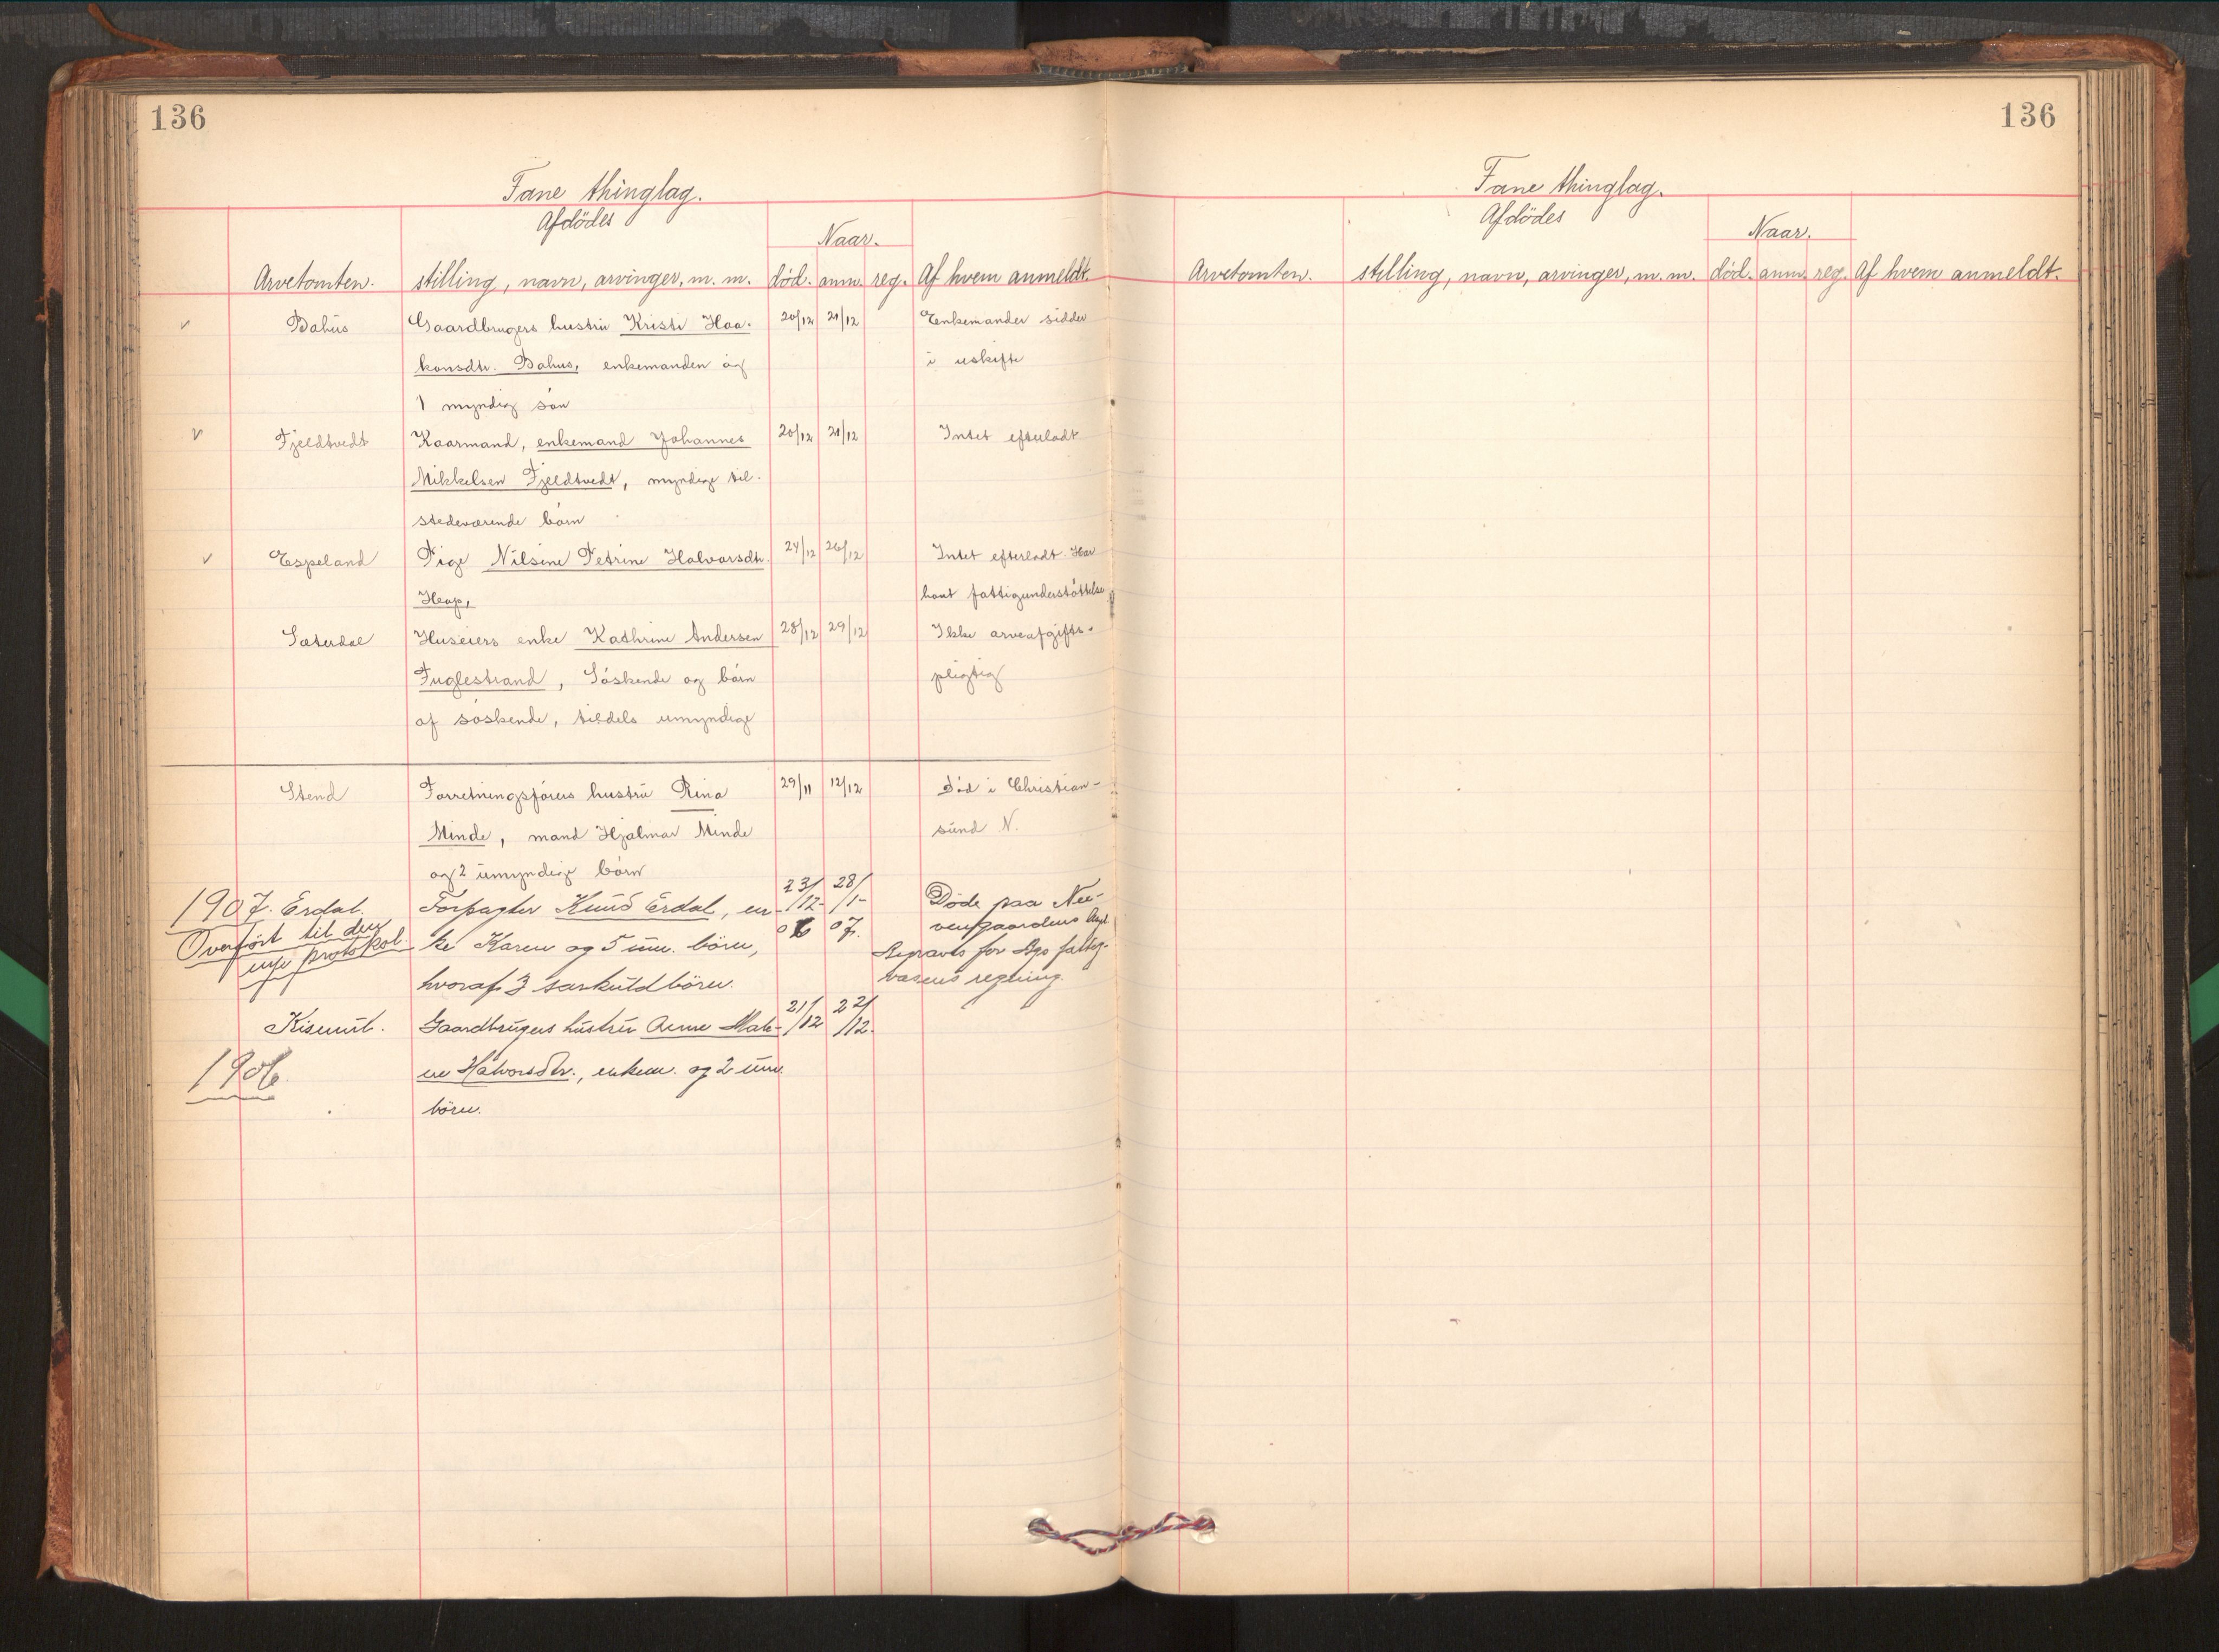 136
Fane thinglag.
Afdödes
Naar.
Arvetomten. stilling, navn, arvinger, m. m. död. anm. reg. Af hvem anmeldt.
Bahus Gaardbrugers hustru Kristi Haa- 20/12 21/12 Enkemanden sidder
konsdtr. Bahus, enkemanden og i uskifte
1 myndig søn
Fjeldtvedt Kaarmand, enkemand Johannes 20/12 21/12 Intet efterladt
Mikkelsen Fjeldtvedt, myndige til-
stedeværende børn
Espeland Pige Nilsine Petrine Halvorsdtr. 24/12 26/12 Intet efterladt. Har
Heop, havt fattigunderstøttelse
Sæterdal Huseiers enke Kathrine Andersen 28/12 29/12 Ikke arveafgifts-
Fuglestrand, Søskende og børn pligtig
af søskende, tildels umyndige
Stend Forretningsførers hustru Rina 29/11 12/12 Død i Christian-
Minde, mand Hjalmar Minde sund N.
og 2 umyndige børn
1907. Erdal. Forpagter Knud Erdal, en- 23/12- 28/1- Døde paa Neu-
Overført til den ke Karen og 5 um. børn, 06 07. vengaardens Asyl
nye protokol. hvoraf 3 særkuldbörn. Begraves for Ags fattig-
væsens regning.
Kismul. Gaardbrugers hustru Anne Mate- 21/12 22/12.
1906. ne Halvorsdtr., enkem. og 2 um.
börn.
136
Fane thinglag.
Afdödes
Naar.
Arvetomten. stilling, navn, arvinger, m. m. död. anm. reg. Af hvem anmeldt.